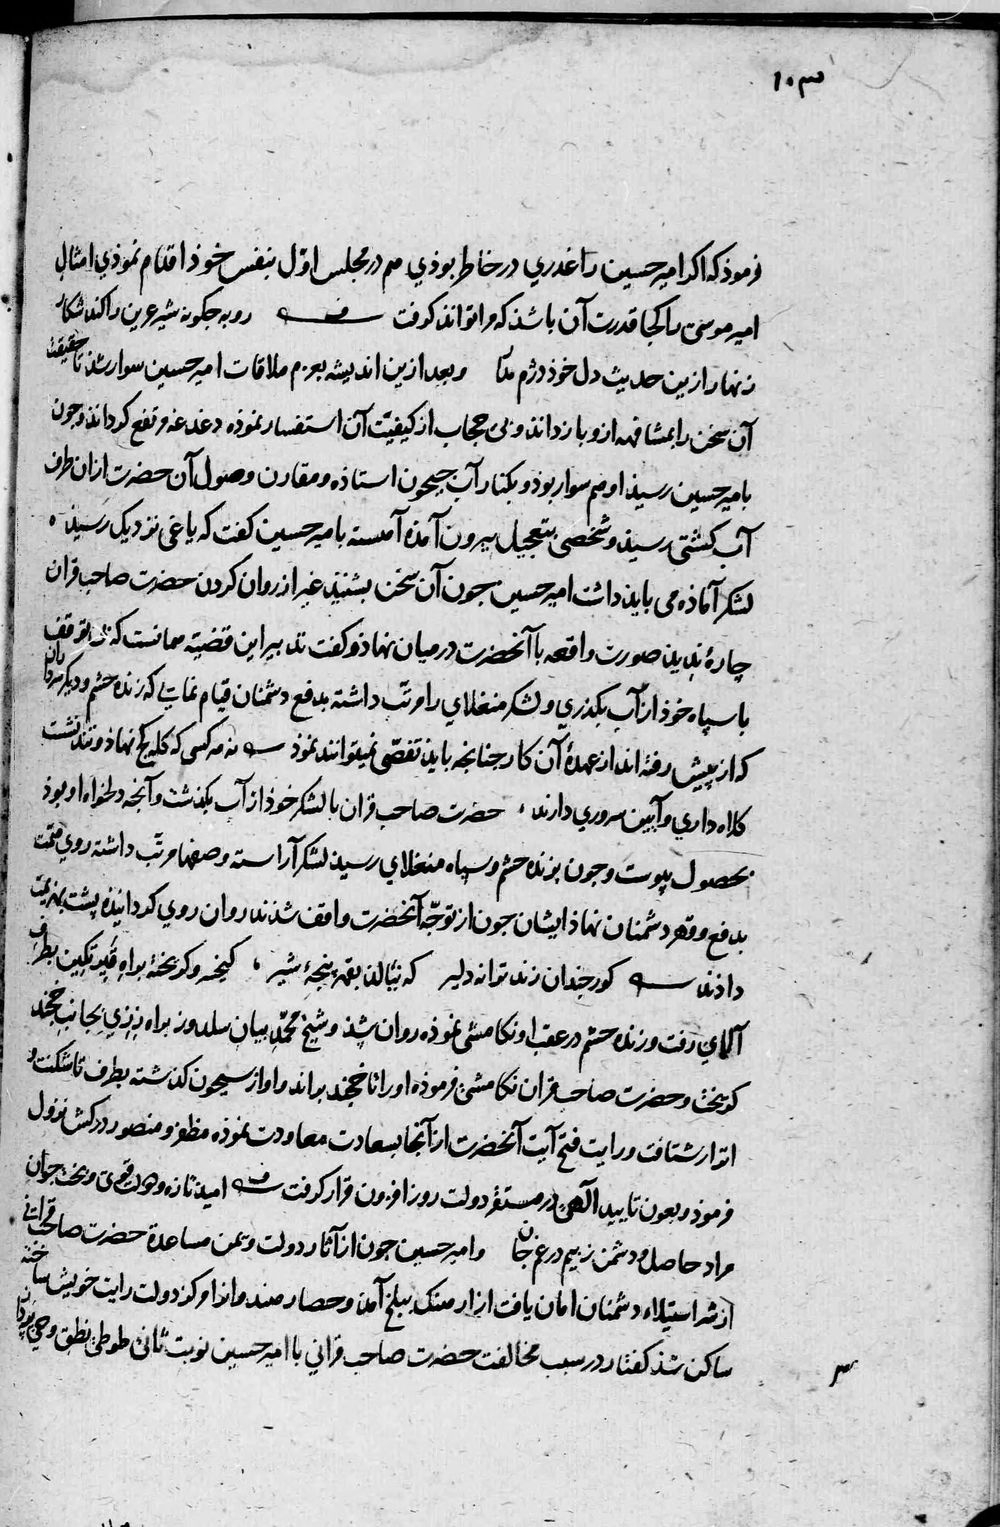 ۱۰۳
فرموذ که اکر امیر حسین را غدری در خاطر بوذی هم در مجلس اوّل بنفس خوذ اقدام نموذی امثال
امیر موسی را کجا قدرت آن باشذ که مرا تواند کرفت روبه جکونه شیر عرین را کند شکار
زنهار ازین حدیث دل خوذ دژم وبعد ازین اندیشه بعزم ملاقات امیر حسین سوار شذ تا حقیقت
آن سخن را بمشافهه ازو باز داند و بی حجاب از کیفیّت آن استفسار نموذه دغدغه مرتفع کرداند وجون
بامیر حسین رسیذ او هم سوار بوذ و بکنار آب جیحون استاذه ومقارن وصول آن حضرت از ان طرف
آب کشتی رسیذ و شخصی بتعجیل بیرون آمذه آهسته بامیر حسین کفت که یاغی نزدیک رسیذ
لشکر آماذه می بایذ داشت امیر حسین جون آن سخن بشنیذ غیر از روان کردن حضرت صاحب قران
چارهٔ ندیذ صورت واقعه با آنحضرت درمیان نهاذ و کفت تدبیر این قضیّه همانست که توقف
با سپاه خوذ از آب بکذری و لشکر منغلای را مرتّب داشته بدفع دشمنان قیام نمایی که زنده حشم و دیکر سرداران
که از پیش رفته اند از عهدهٔ آن کار جنانجه بایذ تفصّی نمیتوانند نموذ نه هر کسی که کله کج نهاذ و تند نشست
کلاه داری و آیین سروری داند حضرت صاحب قران با لشکر خوذ از آب بکذشت و آنجه دلخواه او بوذ
بحصول پیوست وجون بزنده حشم و سپاه منغلای رسیذ لشکر آراسته و صفها مرتّب داشته روی همّت
بدفع وقهر دشمنان نهاذ ایشان جون از توجّه آنحضرت واقف شذند روان روی کردانیذه پشت بهزیمت
داذند کور جندان زند ترانه دلیر که ننالد بقهر پنجهٔ شیر کیخسرو کریخته براه بطرف
آلای رفت وزنده حشم در عقب او تکامشی نموذه روان شذ و شیخ محمّد بیان سلدوز براه بجانب خجند
کریخت و حضرت صاحب قران تکامشی فرموذه اورا تا خجند براند و او از سیحون کذشته بطرف تاشکنت و
اترار شتافت ورایت فتح آیت آنحضرت از آنجا بسعادت معاودت نموذه مظفّر و منصور در کش نزول
فرموذ و بعون تایید الهی در مستقرّ دولت روز افزون قرار کرفت امید تازه و دولت قوی و بخت جوان
مراد حاصل ودشمن ز بیم در غم جان وامیر حسین جون از آثار دولت و یمن مساعدة حضرت صاحب قرانی
از شر استیلاء دشمنان امان یافت از ارهنک ببلخ آمد وحصار هندوانرا مرکز دولت رایت خویش ساخته
ساکن شذ کفتار در سبب مخالفت حضرت صاحب قرانی با امیر حسین نوبت ثانی طوطی نطق